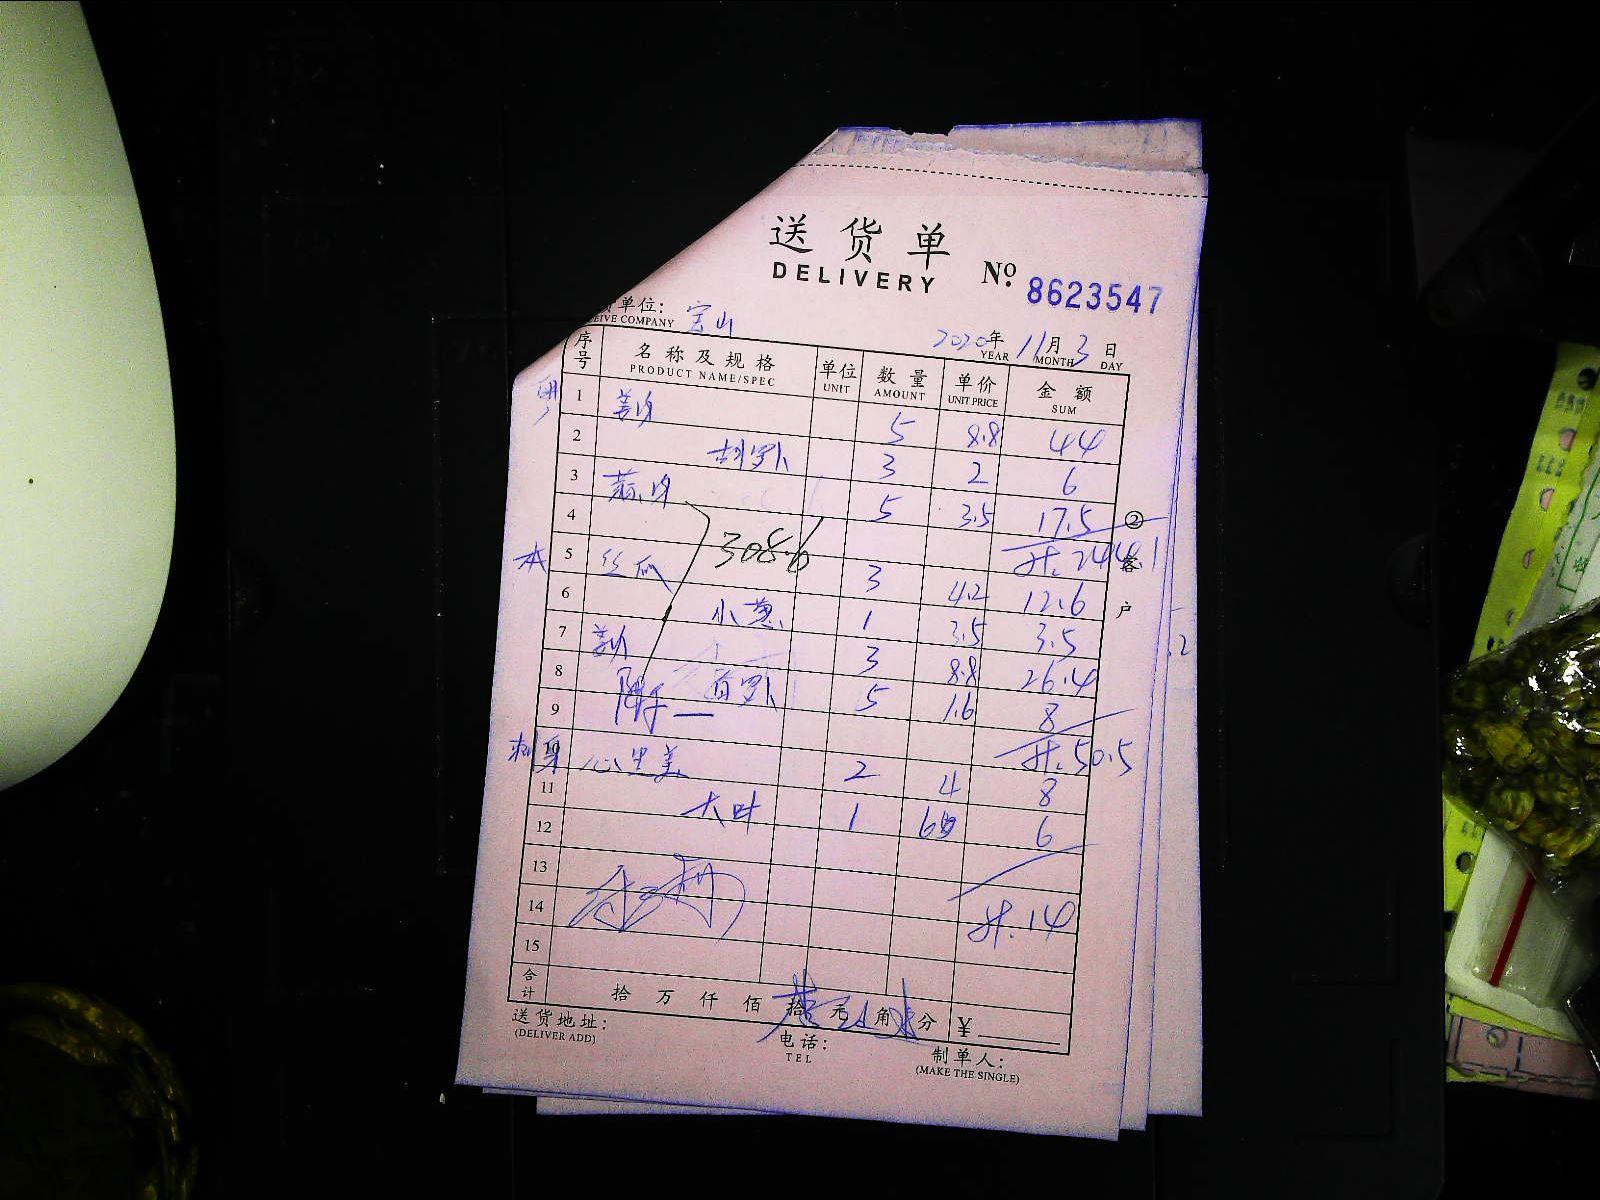 送货单
DELIVERY
№ 8623547
货单位: 宝山
EIVE COMPANY
2020年 11月 3日
YEAR MONTH DAY
序号 名称及规格 单位 数量 单价 金额
PRODUCT NAME/SPEC UNIT AMOUNT UNIT PRICE SUM
1 姜片 5 8.8 44
2 胡罗卜 3 2 6
3 蒜片 5 3.5 17.5
4 308.6 计. 244.1
本 5 丝瓜 3 4.2 12.6
6 小葱 1 3.5 3.5
7 姜片 3 8.8 26.4
8 白罗卜 5 1.6 8
9 附一 计. 50.5
刺身 10 心里美 2 4 8
11 大叶 1 6 6
12
13 计. 14
14
15
合计 拾 万 仟 佰 拾 元 角 分 ¥
② 客户
送货地址:
(DELIVER ADD)
电话:
TEL
制单人:
(MAKE THE SINGLE)